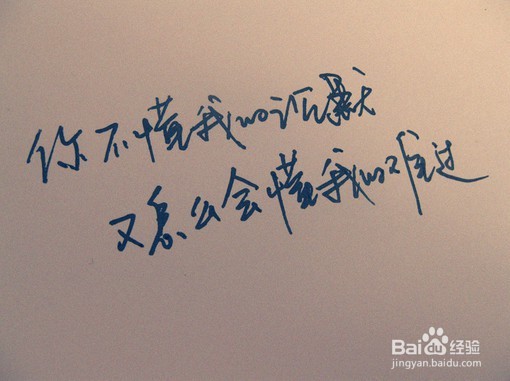 你不懂我的沉默
又怎么会懂我的难过
Bai du 经验
jingyan.baidu.com